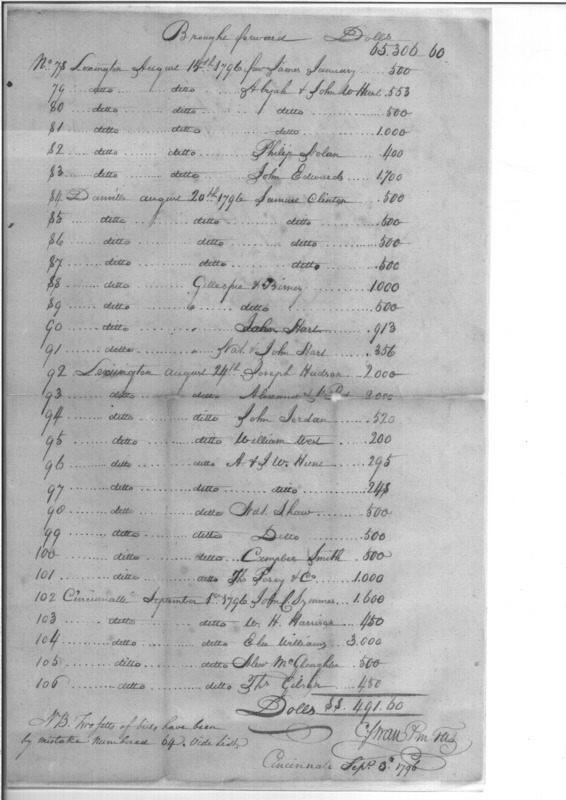 Brought forward Dolls
65.306 60
No. 78 Lexington August 18th 1796 favr James January 500
79 ditto ditto Abijah & John W Hunt 553
80 ditto ditto ditto 500
81 ditto ditto ditto 1.000
82 ditto ditto Philip Nolan 400
83 ditto ditto John Edwards 1,700
84 Danville august 20th 1796 Samuel Clinton 500
85 ditto ditto ditto 500
86 ditto ditto ditto 500
87 ditto ditto ditto 500
88 ditto Gillespie & Birney 1000
89 ditto " ditto 500
90 ditto " John Hart 913
91 ditto " Nat. & John Hart 356
92 Lexington august 24th Joseph Hudson 2.000
93 ditto ditto Alexander & 3.000
94 ditto ditto John Jordan 520
95 ditto ditto William West 200
96 ditto ditto A & J W. Hunt 295
97 ditto ditto ditto 248
98 ditto ditto Nat. Shaw 500
99 ditto ditto Ditto 500
100 ditto ditto Smith 800
101 ditto ditto Tho & Co. 1.000
102 Cincinnati September 1st 1796 John C Symmes 1.600
103 ditto ditto W. H. Harrison 450
104 ditto ditto Williams 3.000
105 ditto ditto 500
106 ditto ditto Thos Gibson 450
Dolls 88. 491.60
NB. Two setts of bills have been
by mistake numbered 64. Vide list
C Swan P
Cincinnati Sept. 3d 1796